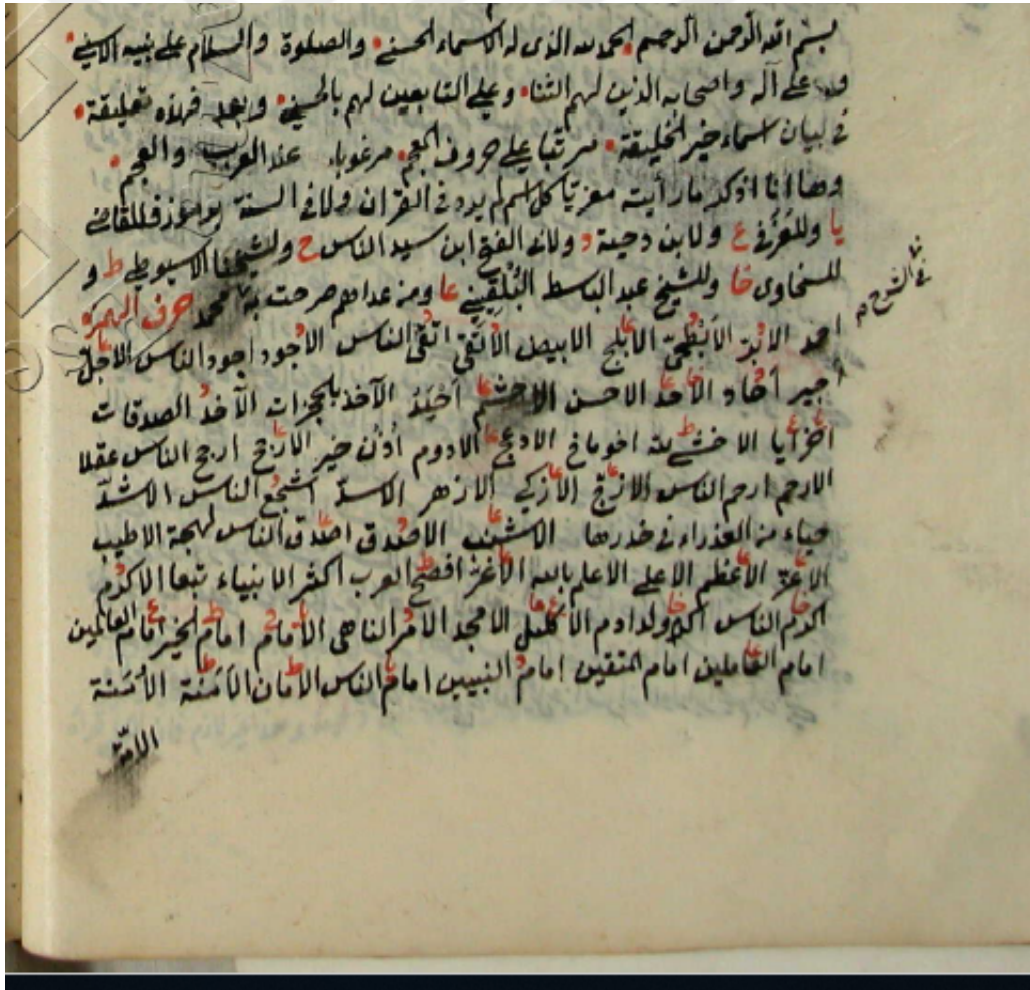 بسم الله الرحمن الرحيم الحمد لله الذي له الاسماء الحسنى والصلوة والسلام على نبيه الاسنى
وعلى آله واصحابه الذين لهم الثناء وعلى التابعين لهم بالحسنى وبعد فهذه تعليقة
في بيان اسماء خير الخليقة مرتبا على حروف المعجم مرغوبا عند العرب والعجم
وها انا اذكر ما رأيته معزيا كل اسم لم يرد في القران ولا في السنة فللقاضي
يا وللعزفي ع ولابن دحية د ولابي الفتح ابن سيد الناس ح ولشيخنا الاسيوطي ط و
للسخاوي خا وللشيخ عبد الباسط البلقيني عا ومن عداهم صرحت به محمد حرف الهمزة
احمد الابر الابطحي الابلج الابيض الاتقى اتقى الناس الاجود اجود الناس الاجل
اجير احاد الاحد الاحسن الاحشم احيد الآخذ بالحجزات الآخذ الصدقات
اخرايا الاخشى لله اخوماخ الادعج الادوم اذن خير الارجح ارجح الناس عقلا
الارحم ارحم الناس الازج الازكى الازهر الاسد اشجع الناس الاشد
حياء من العذراء في خدرها الاشنب الاصدق اصدق الناس لهجة الاطيب
الاعز الاعظم الاعلى الاعلم بالله الاغر افصح العرب اكثر الانبياء تبعا الاكرم
اكرم الناس اكرم ولد ادم الاكليل الامجد الآمر الناهي الامام امام الخير امام العالمين
امام العاملين امام المتقين امام النبيين امام الناس الامان الامنة الامنة
الامة
في الشرح